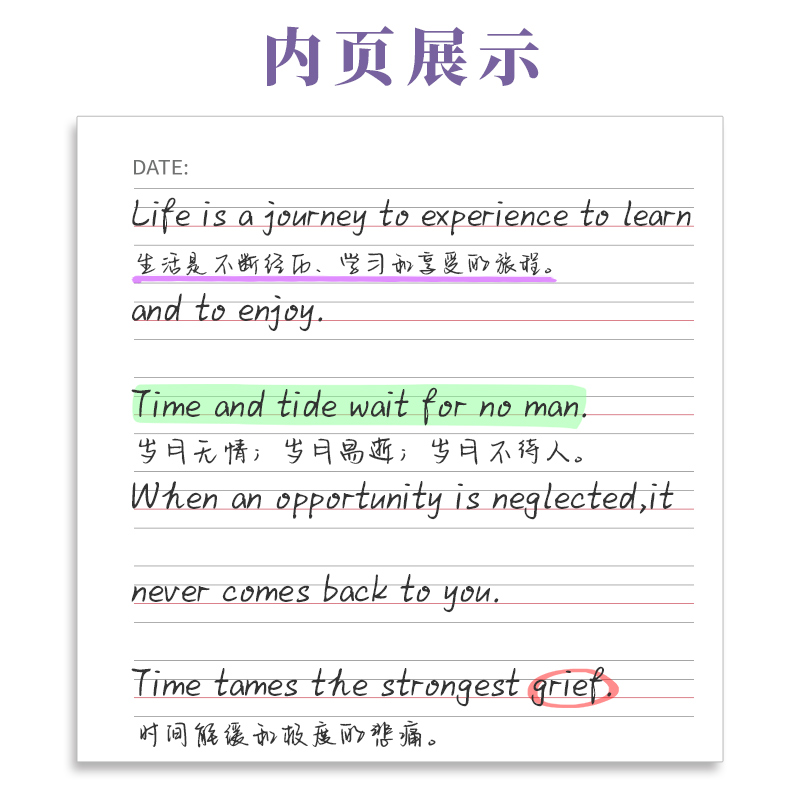 内页展示
DATE:
Life is a journey to experience to learn
生活是不断经历、学习和享受的旅程。
and to enjoy.
Time and tide wait for no man.
岁月无情；岁月易逝；岁月不待人。
When an opportunity is neglected,it
never comes back to you.
Time tames the strongest grief.
时间能缓和极度的悲痛。